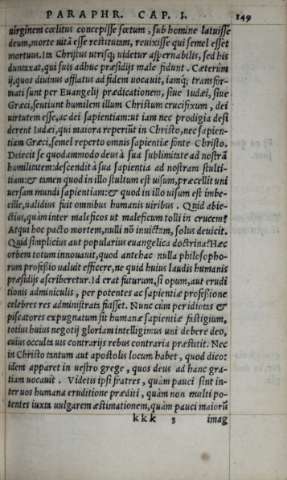 PARAPHR. CAP. I. 149
uirginem cœlitus concepisse fœtum, sub homine latuisse
deum, morte uitã esse restitutam, reuixisse qui semel esset
mortuus. Iam Christus utrisq; uidetur aspernabilis, sed his
duntaxat, qui suis adhuc præsidijs male fidunt. Cæterum
ij, quos diuinus afflatus ad fidem uocauit, iamq; transfor=
mati sunt per Euangelij prædicationem, siue Iudæi, siue
Græci, sentiunt humilem illum Christum crucifixum, dei
uirtutem esse, ac dei sapientiam: ut iam nec prodigia desi
derent Iudæi, qui maiora reperiũt in Christo, nec sapien=
tiam Græci, semel reperto omnis sapientiæ fonte Christo.
Deiecit se quodammodo deus à sua sublimitate ad nostrã
humilitatem: descendit à sua sapientia ad nostram stulti=
tiam: & tamen quod in illo stultum est uisum, præcellit uni
uersam mundi sapientiam: & quod in illo uisum est imbe=
cille, ualidius fuit omnibus humanis uiribus. Quid abie=
ctius, quàm inter maleficos ut maleficum tolli in crucem?
At qui hoc pacto mortem, nulli nõ inuictam, solus deuicit.
Quid simplicius aut popularius euangelica doctrina? Hæc
orbem totum innouauit, quod antehac nulla philosopho=
rum professio ualuit efficere, ne quid huius laudis humanis
præsidijs ascriberetur. Id erat futurum, si opum, aut erudi
tionis adminiculis, per potentes ac sapientiæ professione
celebres res administrata fuisset. Nunc cùm per idiotas &
piscatores expugnatum sit humanæ sapientiæ fastigium,
totius huius negotij gloriam intelligimus uni debere deo,
cuius occulta uis contrarijs rebus contraria præstitit. Nec
in Christo tantum aut apostolis locum habet, quod dico:
idem apparet in uestro grege, quos deus ad hanc gra=
tiam uocauit. Videtis ipsi fratres, quàm pauci sint in=
ter uos humana eruditione præditi, quàm non multi po=
tentes iuxta uulgarem æstimationem, quàm pauci maiorũ
kkk 3 imag